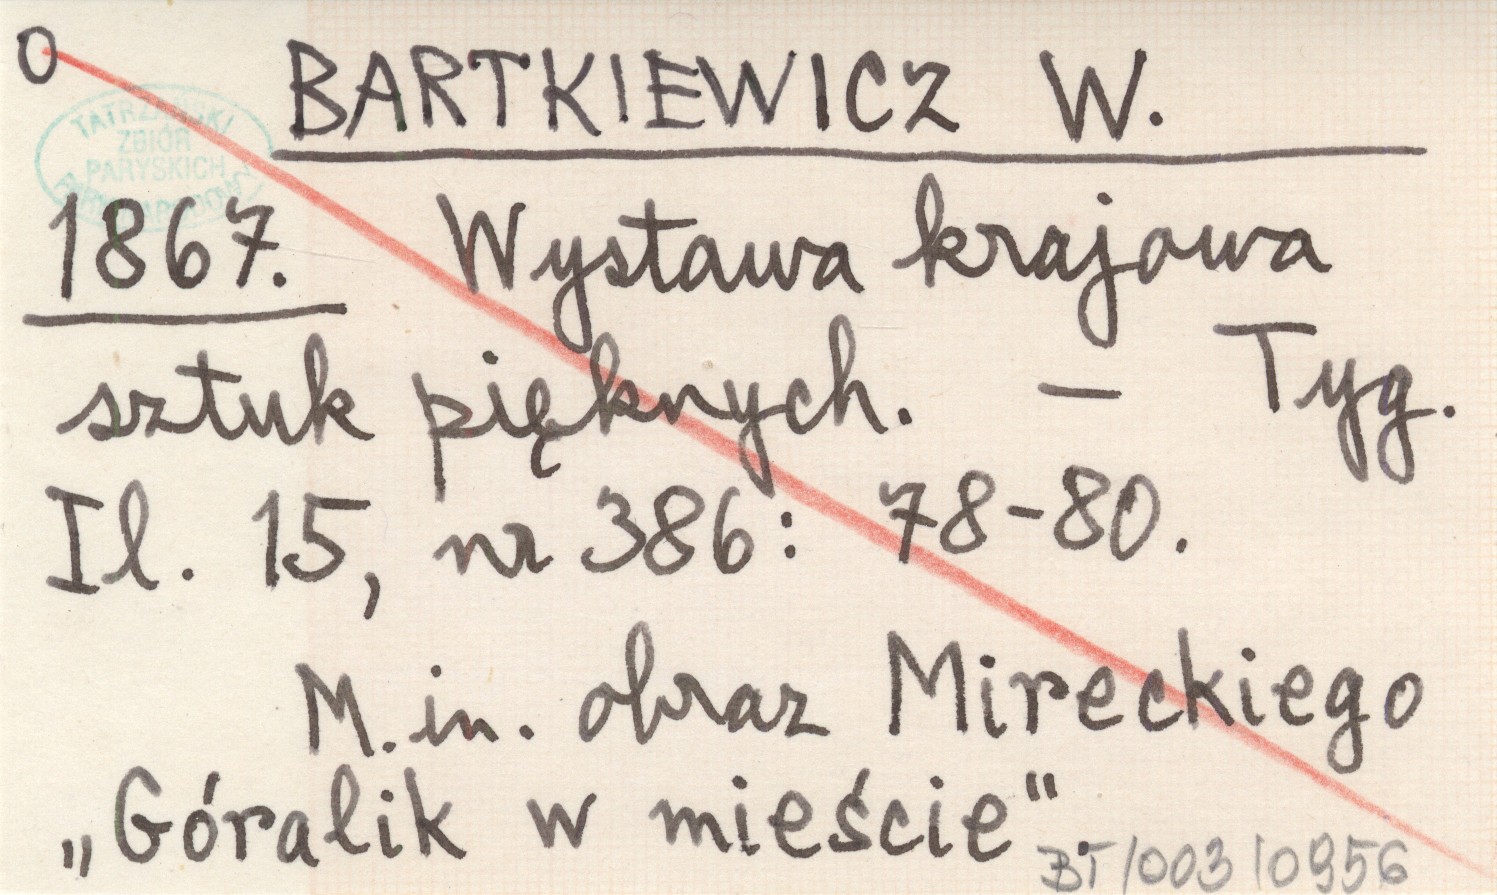 O
BARTKIEWICZ W.
TATRZAŃSKI
ZBIÓR
PARYSKICH
1867. Wystawa krajowa
sztuk pięknych. – Tyg.
Il. 15, nr 386: 78-80.
M.in. obraz Mireckiego
„Góralik w mieście".
BT/003/0956